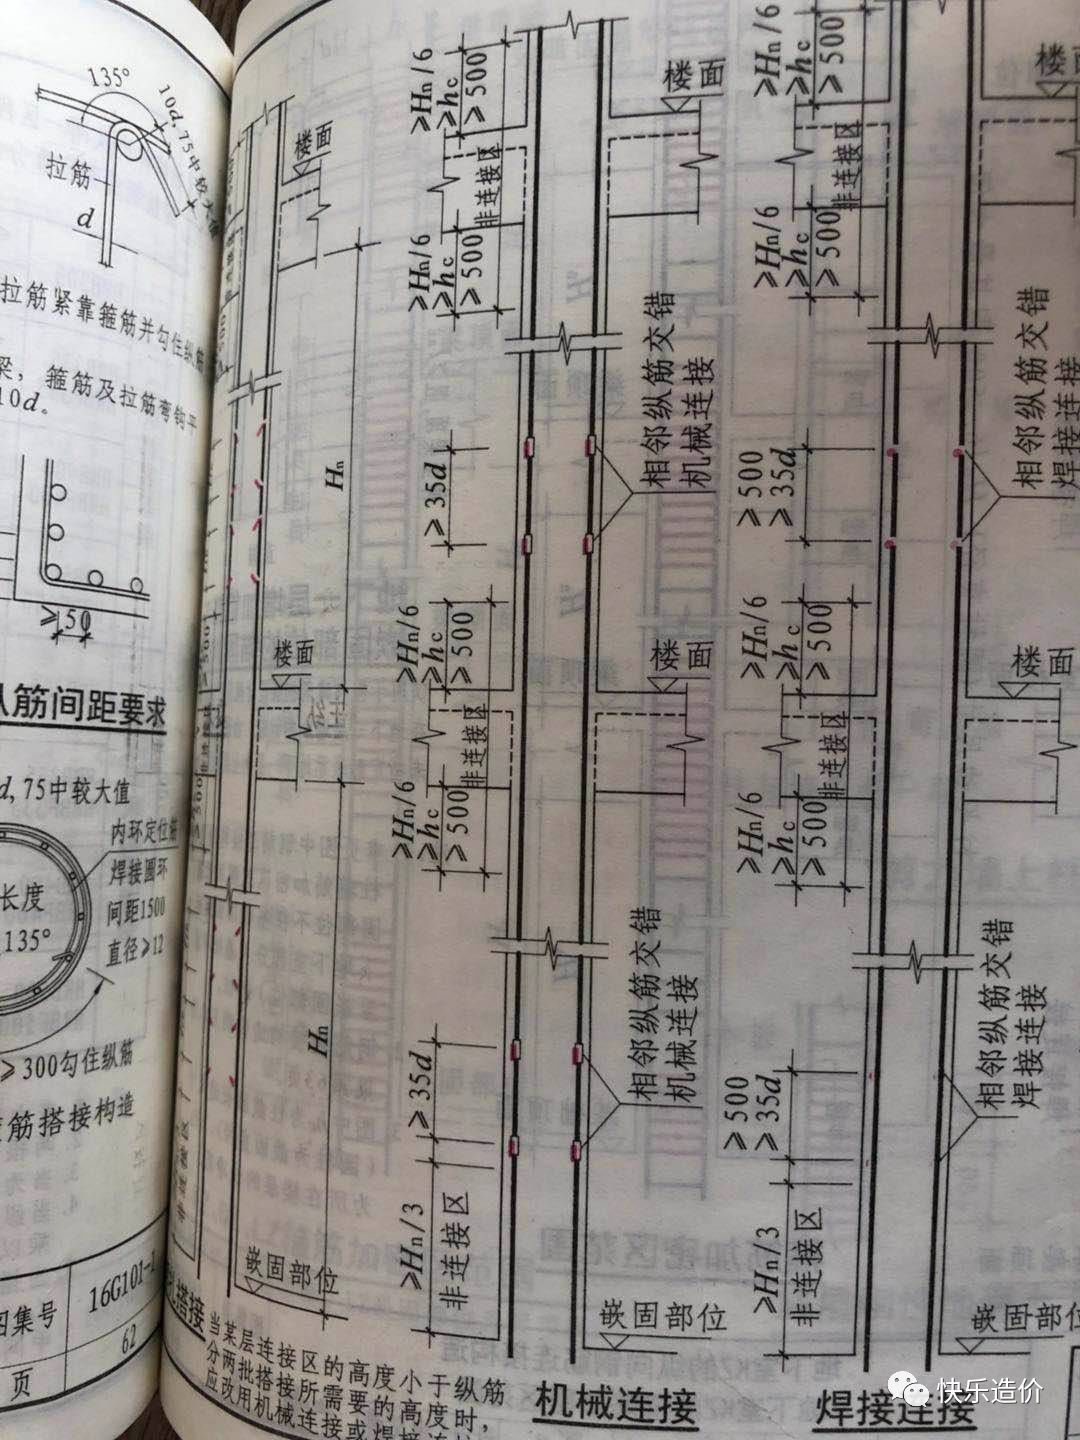 135°
10d,75中较大值
拉筋
d
拉筋紧靠箍筋并勾住纵筋
梁，箍筋及拉筋弯钩平
10d。
≥150
纵筋间距要求
d,75中较大值
内环定位筋
焊接圆环
间距1500
直径≥12
长度
135°
≥300勾住纵筋
筋搭接构造
图集号
16G101-1
页
62
楼面
Hn
楼面
Hn
嵌固部位
搭接
当某层连接区的高度小于纵筋
分两批搭接所需要的高度时，
应改用机械连接或焊接连接
≥Hn/6
≥hc
≥500
楼面
非连接区
≥Hn/6
≥hc
≥500
相邻纵筋交错
机械连接
≥35d
≥Hn/6
≥hc
≥500
楼面
非连接区
≥Hn/6
≥hc
≥500
相邻纵筋交错
机械连接
≥35d
≥Hn/3
非连接区
嵌固部位
机械连接
≥Hn/6
≥hc
≥500
楼面
非连接区
≥Hn/6
≥hc
≥500
相邻纵筋交错
焊接连接
≥500
≥35d
≥Hn/6
≥hc
≥500
楼面
非连接区
≥Hn/6
≥hc
≥500
相邻纵筋交错
焊接连接
≥500
≥35d
≥Hn/3
非连接区
嵌固部位
焊接连接
快乐造价